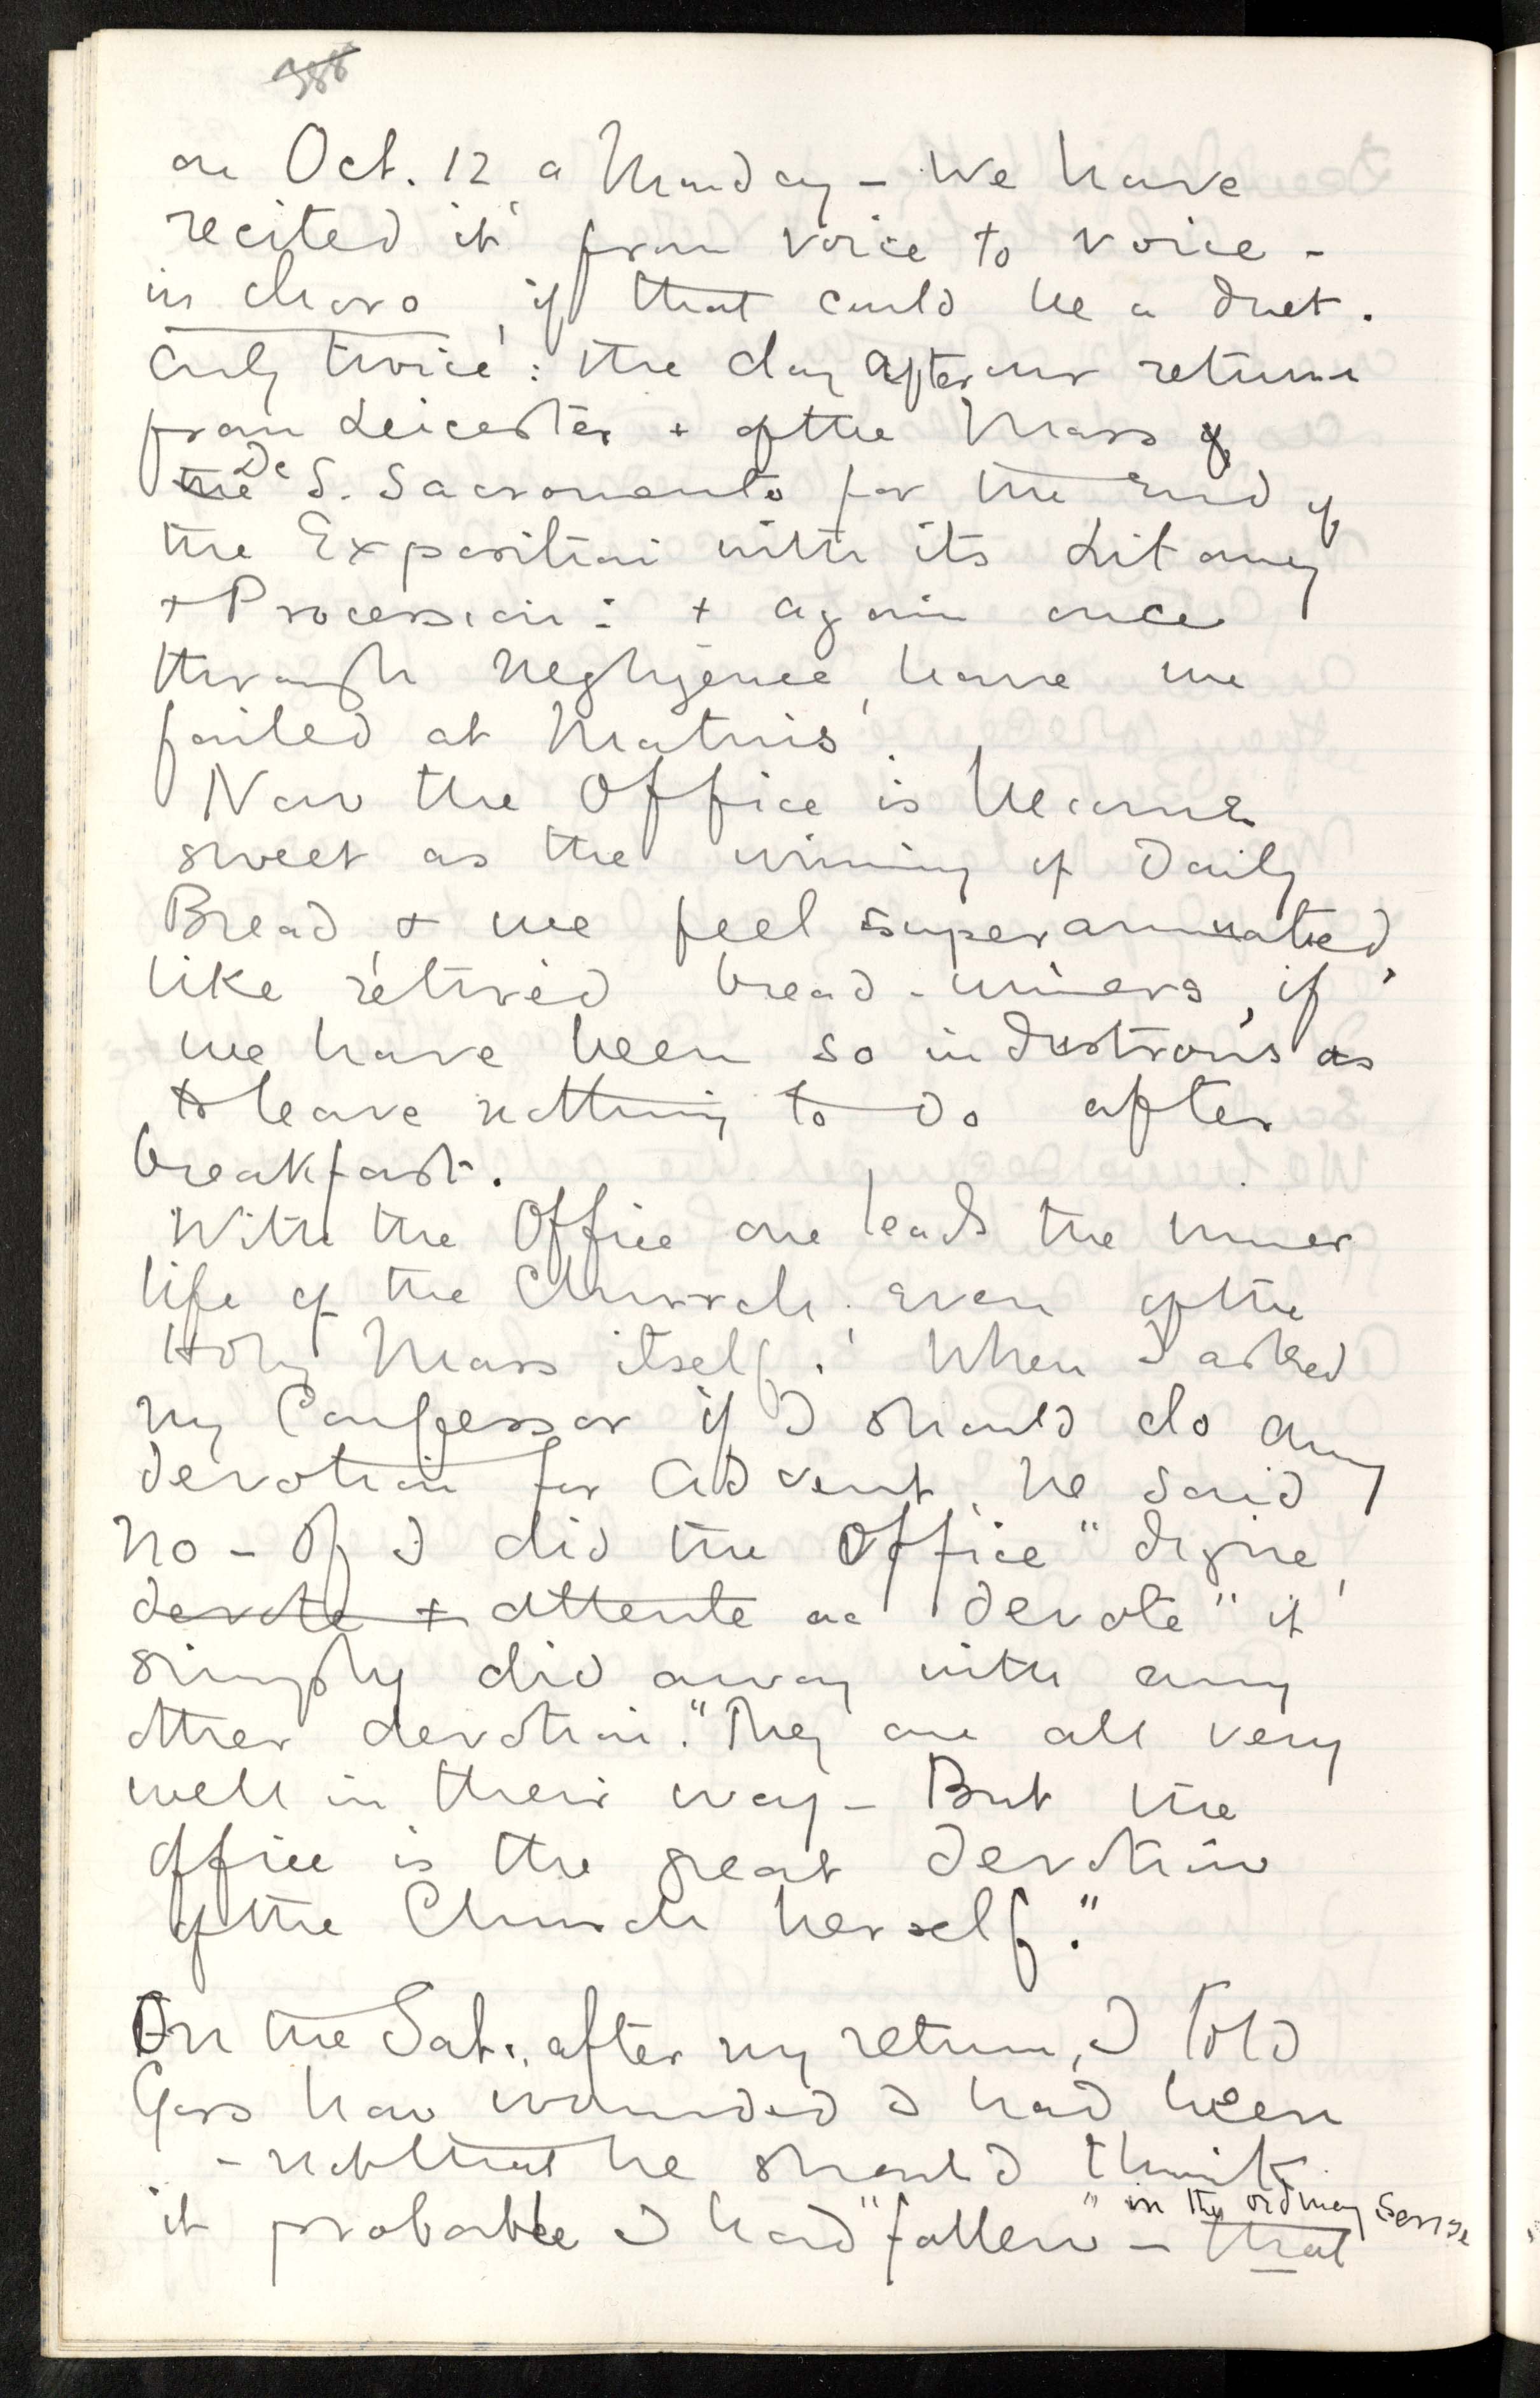 388
on Oct. 12, a Monday – We have
recited it from voice to voice –
in choro, if that could be a duet.
Only twice: the day after our return
from Leicester + of the Mass of
the De S. Sacramento for the End of
the Exposition with its Litany
+ Procession: + again once
through negligence, have we
failed at Matins.
Now the Office is become
sweet as the winning of Daily
Bread, + we feel superannuated,
like retired bread-winers, if
we have been so industrious as
to leave nothing to do after
breakfast.
With the Office one leads the inner
life of the Church, even of the
Holy Mass itself. When I asked
my Confessor if I should do any
devotion for Advent, he said
no – If I did the Office "digne,
devote + attente ac devote" it
simply did away with any
other devotion. "They are all very
well in their way – But the
Office is the great devotion
of the Church herself."
On the Sat. after my return, I told
Goss how wounded I had been
– not that he should think
it probable I had "fallen" in the ordinary sense – that